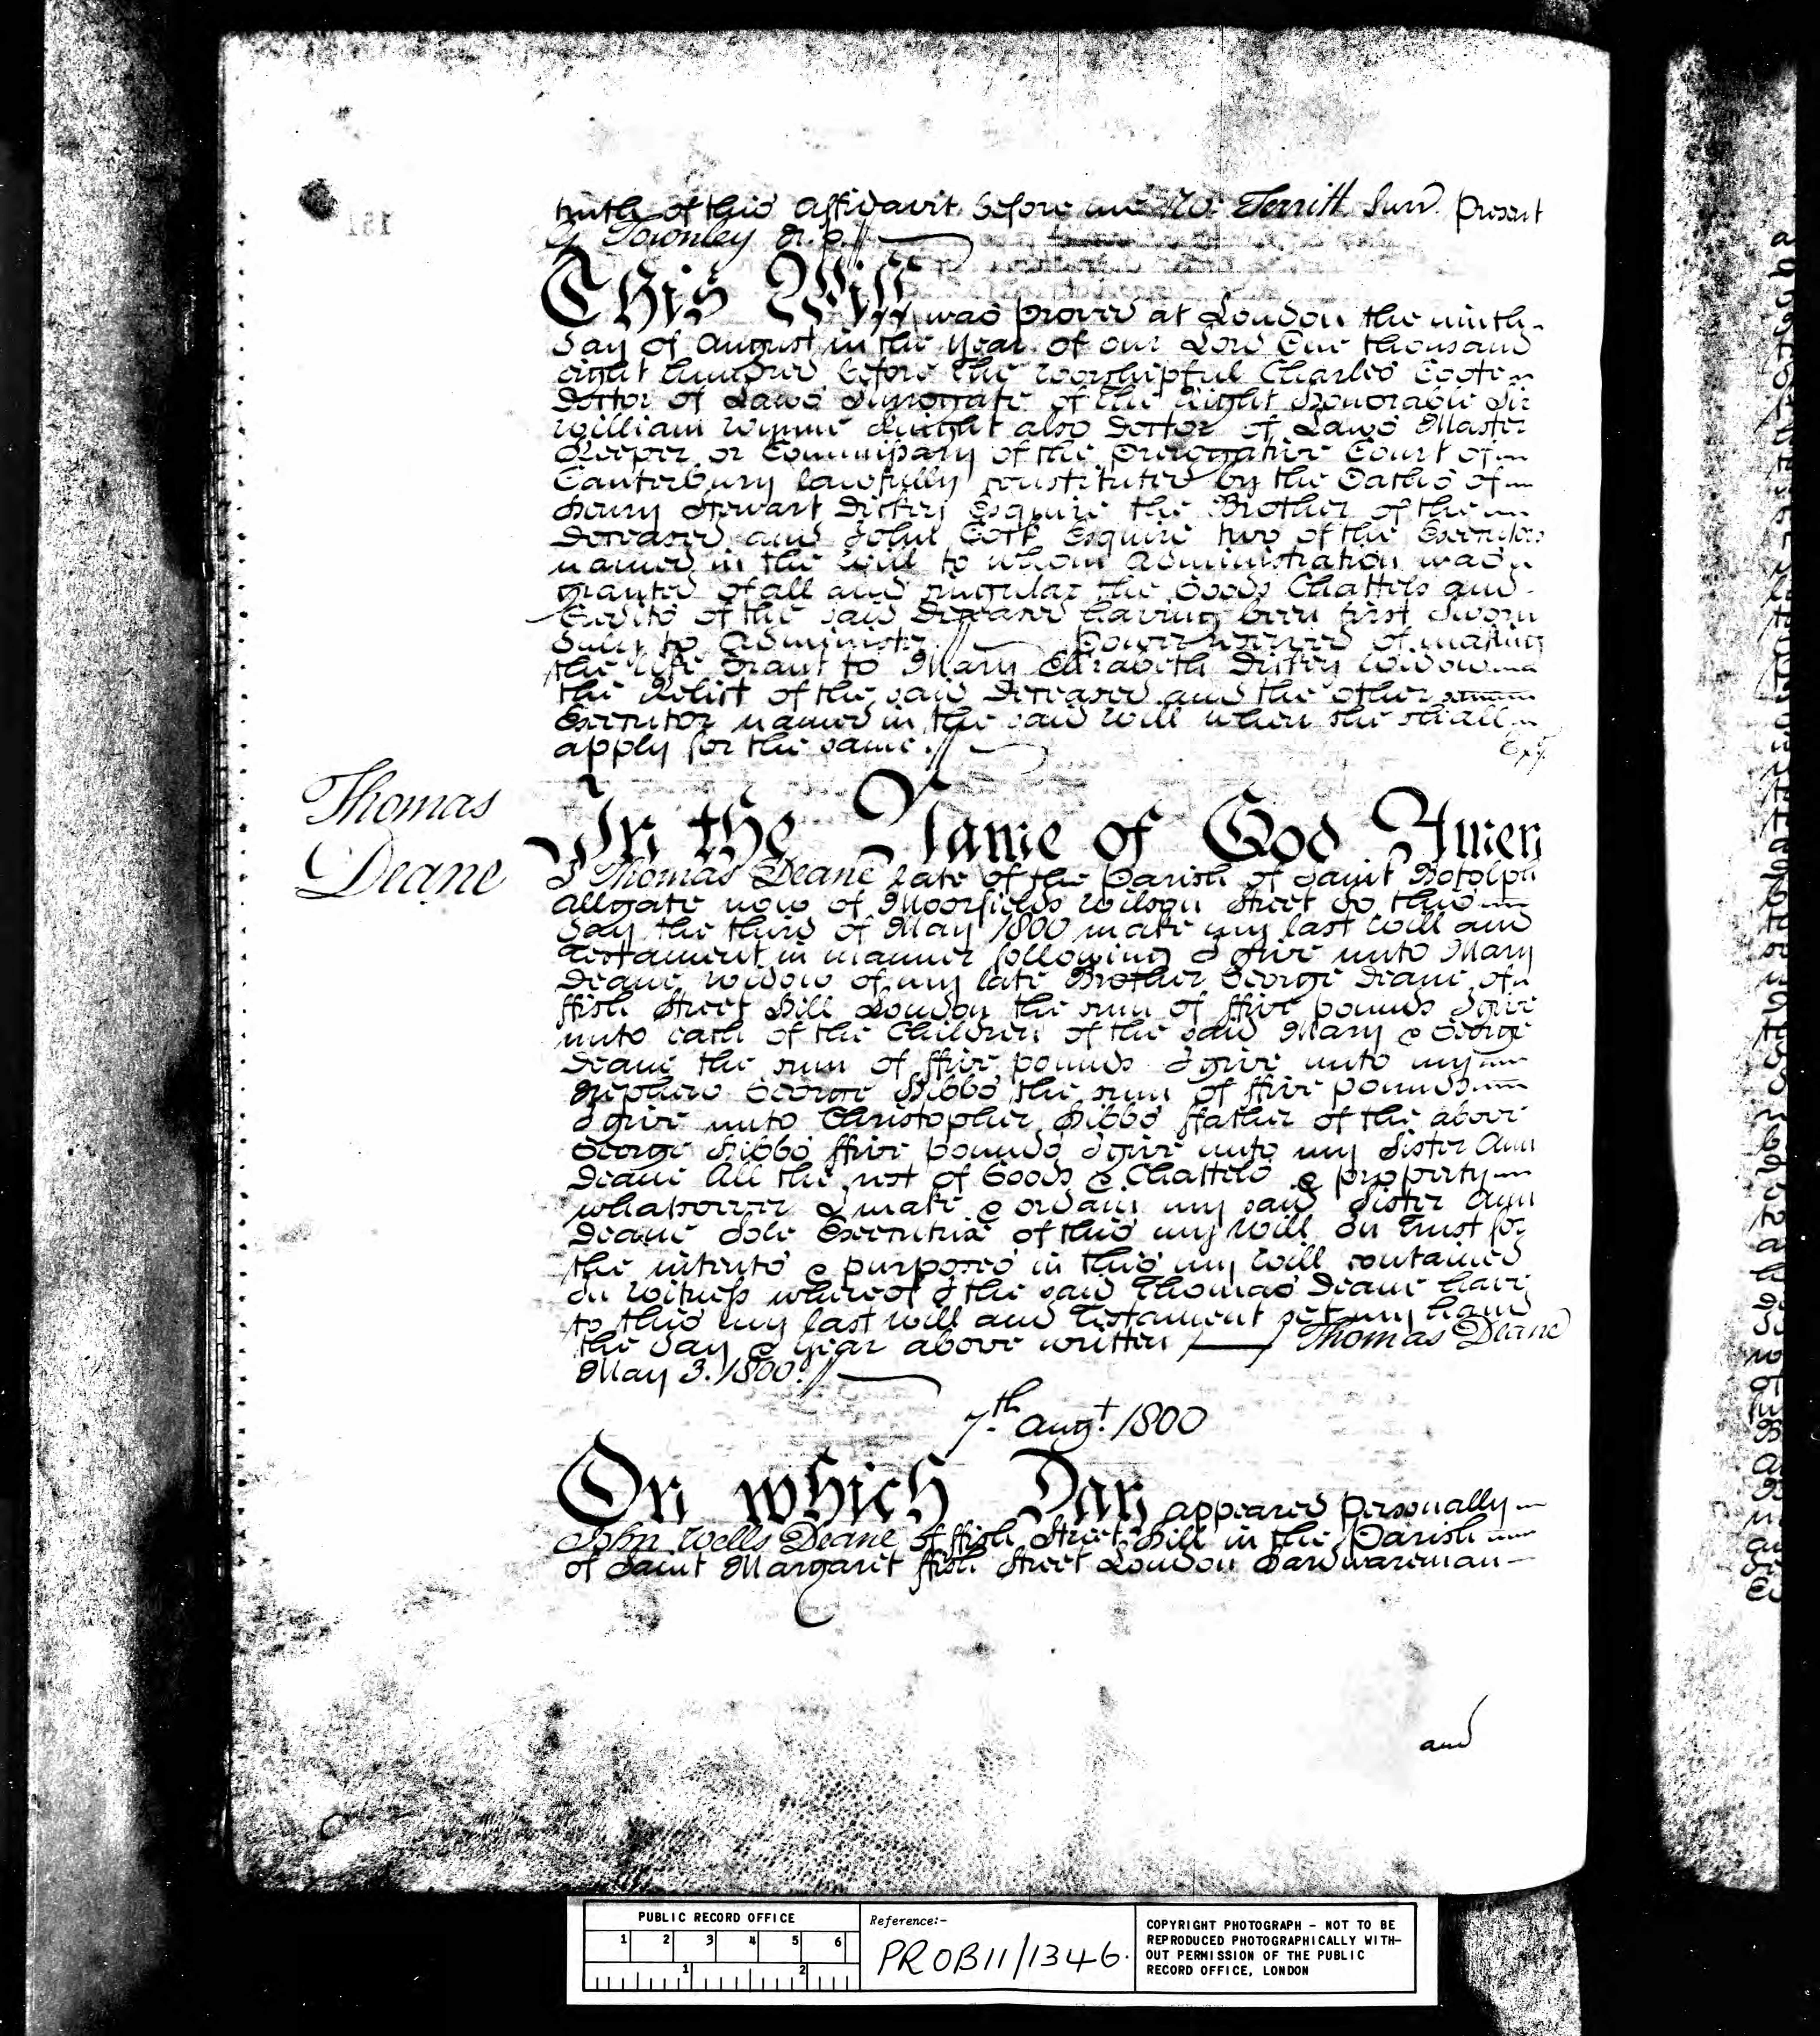 truth of this affidavit before me Wm. Territt Surr. Present
G Townley N.P.
This Will was proved at London the ninth
day of August in the year of our Lord One thousand
eight hundred before the Worshipful Charles Coote
Doctor of Laws Surrogate of the Right Honorable Sir
William Wynne Knight also Doctor of Laws Master
Keeper or Commissary of the Prerogative Court of
Canterbury lawfully constituted by the Oaths of
Henry Stewart Esquire the Brother of the
Deceased and John Esquire two of the Executors
named in the will to whom administration was
granted of all and singular the Goods Chattels and
Credits of the said Deceased having been first sworn
duly to administer Power reserved of making
the like Grant to Mary Elizabeth Widow
the Relict of the said Deceased and the other
Executor named in the said will when she shall
apply for the same
Exd.
Thomas
Deane
In the Name of God Amen
I Thomas Deane late of the Parish of Saint Botolph
Allgate now of Moorfields Wilson Street do this
day the third of May 1800 make my last will and
Testament in manner following I give unto Mary
Deane widow of my late Brother George Deane of
ffish Street Hill London the sum of ffive pounds I give
unto each of the Children of the said Mary & George
Deane the sum of ffive pounds I give unto my
Nephew George Hibbs the sum of ffive pounds
I give unto Christopher Hibbs ffather of the above
George Hibbs ffive pounds I give unto my Sister Ann
Deane All the rest of Goods & Chattels & property
whatsoever I make & ordain my said Sister Ann
Deane Sole Executrix of this my will In trust for
the intents & purposes in this my will contained
In Witness whereof I the said Thomas Deane have
to this my last will and Testament set my hand
the day & year above written Thomas Deane
May 3. 1800
7th. Augt. 1800
On which Day appeared personally
John Wells Deane of ffish Street Hill in the Parish
of Saint Margaret ffish Street London Hardwareman
and
PUBLIC RECORD OFFICE
1 2 3 4 5 6
1 2
Reference:-
PROB 11/1346.
COPYRIGHT PHOTOGRAPH - NOT TO BE
REPRODUCED PHOTOGRAPHICALLY WITH-
OUT PERMISSION OF THE PUBLIC
RECORD OFFICE, LONDON